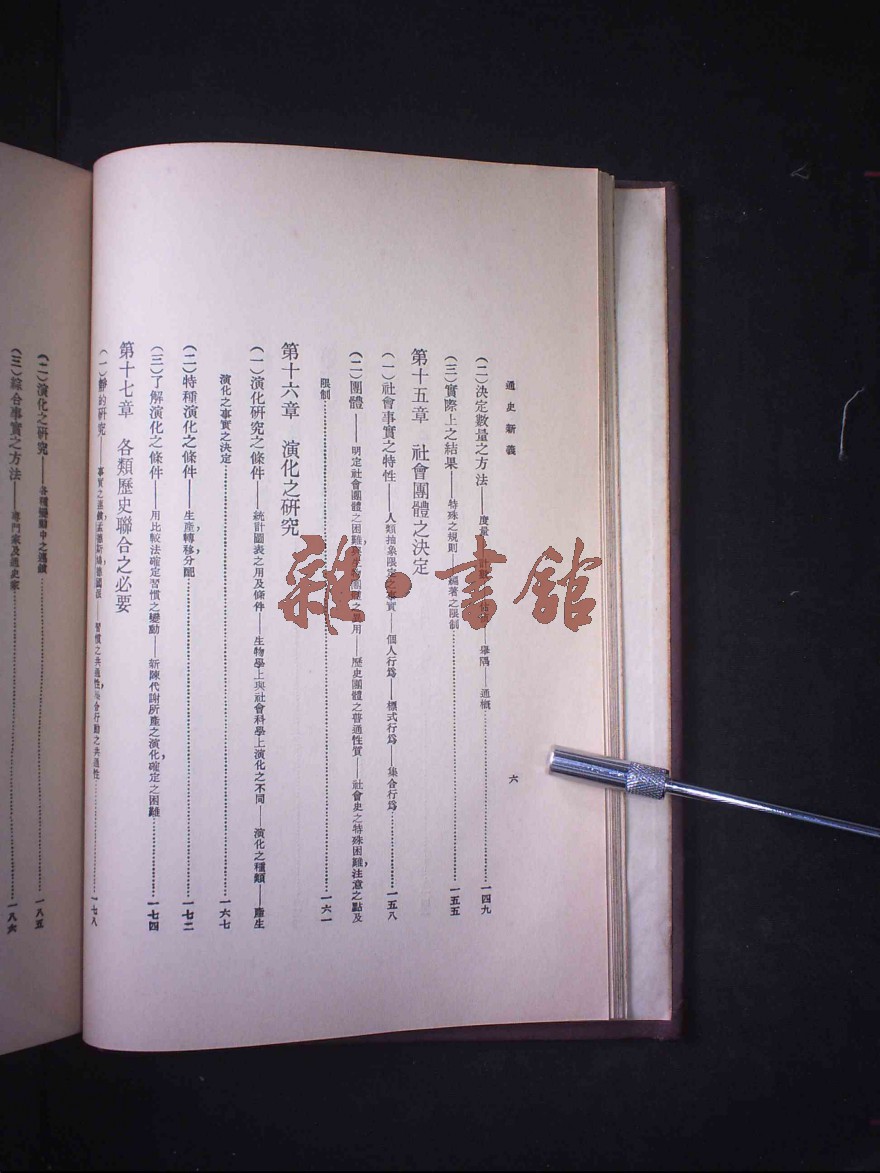 通史新義
六
(二)決定數量之方法——度量——計數——估價——舉隅——通概……一四九
(三)實際上之結果——特殊之規則——編著之限制……一五五
第十五章 社會團體之決定
(一)社會事實之特性——人類抽象限定之事實——個人行為——標式行為——集合行為……一五八
(二)團體——明定社會團體之困難與生物團體之異用——歷史團體之普通性質——社會史之特殊困難,注意之點及
限制……一六一
第十六章 演化之研究
(一)演化研究之條件——統計圖表之用及條件——生物學上與社會科學上演化之不同——演化之種類——產生
演化之事實之決定……一六七
(二)特種演化之條件——生產,轉移,分配……一七二
(三)了解演化之條件——用比較法確定習慣之變動——新陳代謝所產之演化,確定之困難……一七四
第十七章 各類歷史聯合之必要
(一)靜的研究——事實之連鎖,孟德斯鳩,德國派——習慣之共通性,集合行動之共通性……一七八
(二)演化之研究——各種變動中之連鎖……一八五
(三)綜合事實之方法——專門家及通史家……一八六
雜·書館